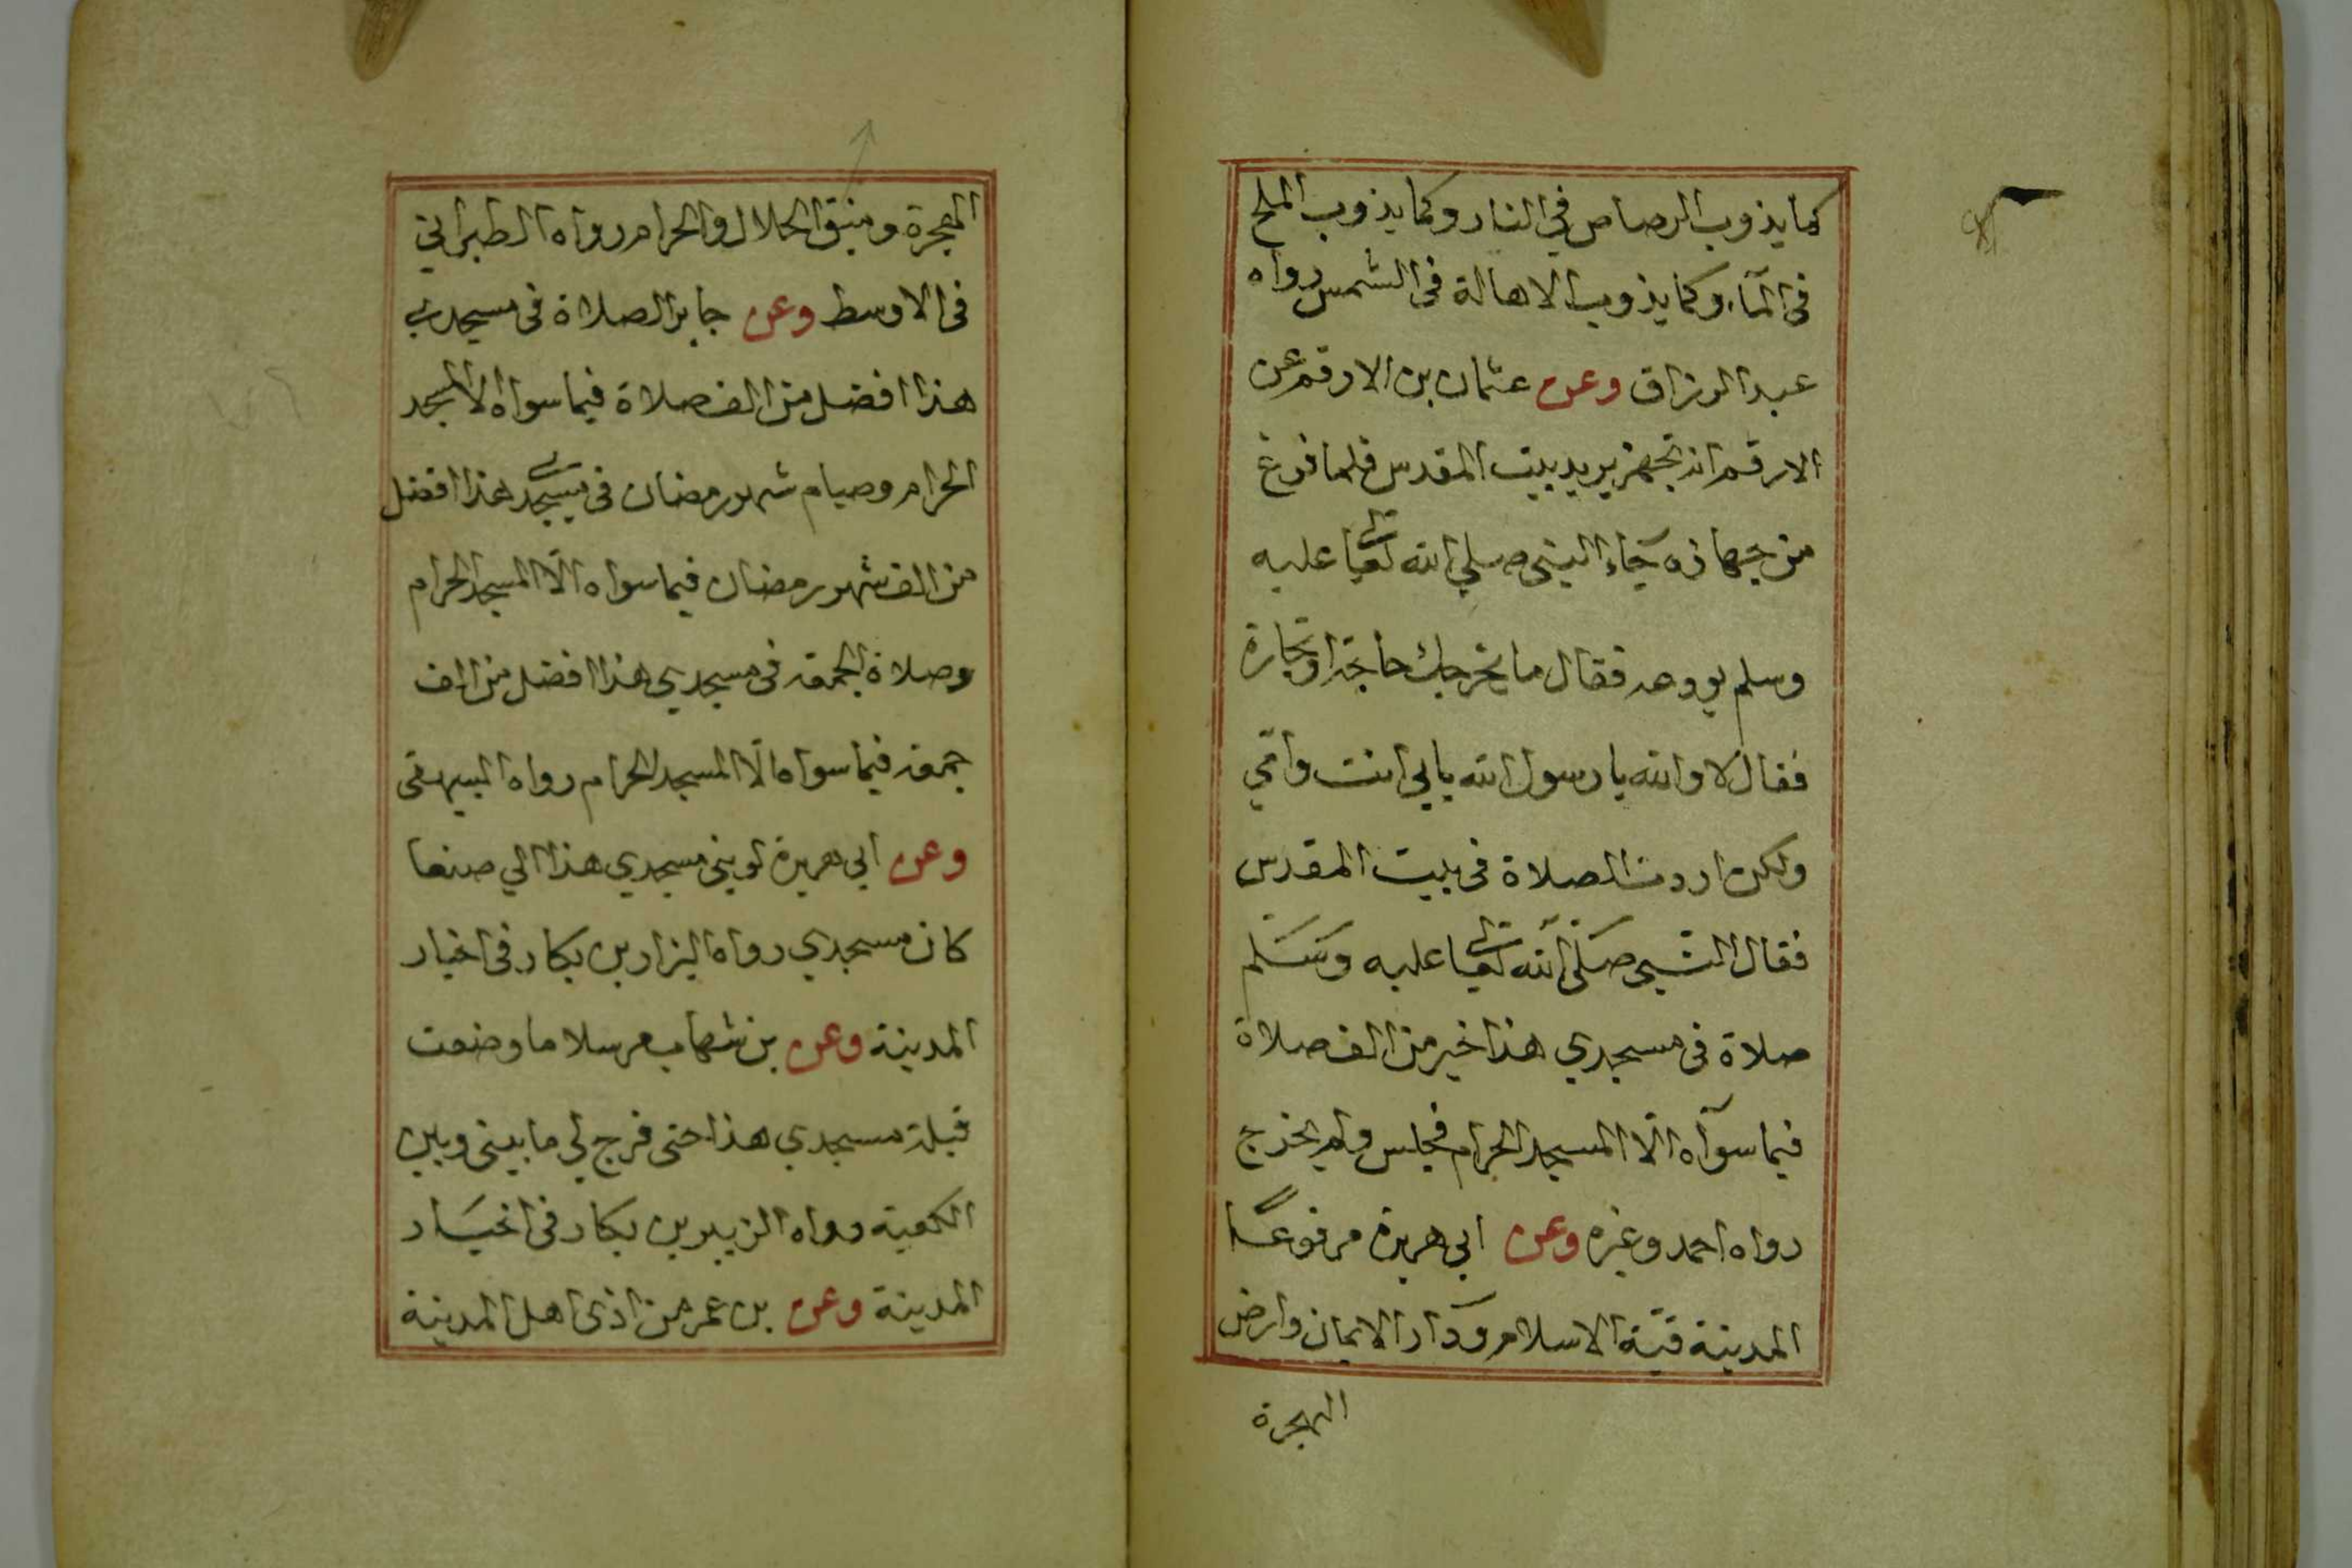 كما يذوب الرصاص في النار وكما يذوب الملح
فى المآء وكما يذوب الاهالة فى الشمس رواه
عبد الرزاق وعن عثمان بن الارقم عن
الارقم انه تجهز يريد بيت المقدس فلما فرغ
من جهازه جاء النبى صلي الله تعالى عليه
وسلم يودعه فقال ما يخرجك حاجة او تجارة
فقال لا والله يا رسول الله بابي انت وامي
ولكن اردت الصلاة فى بيت المقدس
فقال النبى صلى الله تعالى عليه وسلم
صلاة فى مسجدي هذا خير من الف صلاة
فيما سوآه الّا المسجد الحرام فجلس ولم يخرج
رواه احمد وغيره وعن ابي هريرة مرفوعًا
المدينة قبّة الاسلام ودار الايمان وارض
الهجرة
الهجرة ومنبق الحلال والحرام رواه الطبراني
فى الاوسط وعن جابر الصلاة فى مسجدي
هذا افضل من الف صلاة فيما سواه الا المسجد
الحرام وصيام شهر رمضان فى مسجدي هذا افضل
من الف شهر رمضان فيما سواه الّا المسجد الحرام
وصلاة الجمعة فى مسجدي هذا افضل من الف
جمعة فيما سواه الّا المسجد الحرام رواه البيهقى
وعن ابي هريرة لو بنى مسجدي هذا الي صنعا
كان مسجدي رواه الزار بن بكار فى اخبار
المدينة وعن بن شهاب مرسلا ما وضعت
قبلة مسجدي هذا حتى فرج لي ما بينى وبين
الكعبة رواه الزبير بن بكار فى اخبار
المدينة وعن بن عمر من اذى اهل المدينة